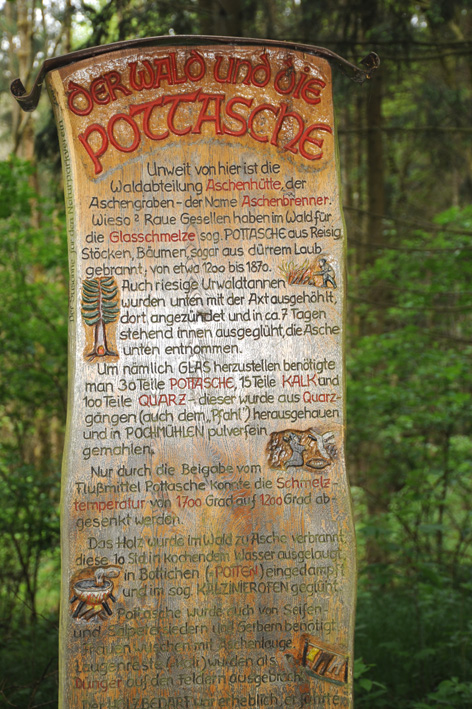 DER WALD und die
POTTASCHE
Unweit von hier ist die
Waldabteilung Aschenhütte, der
Aschergraben - der Name Aschenbrenner.
Wieso? Raue Gesellen haben im Wald für
die Glasschmelze sog. POTTASCHE aus Reisig
Stöcken, Bäumen, sogar aus dürrem Laub
gebrannt; von etwa 1200 bis 1870.
Auch riesige Urwaldtannen
wurden unten mit der Axt ausgehöhlt,
dort angezündet und in ca. 7 Tagen
stehend innen ausgeglüht, die Asche
unten entnommen.
Um nämlich GLAS herzustellen benötigte
man 30 Teile POTTASCHE, 15 Teile KALK und
100 Teile QUARZ - dieser wurde aus Quarz-
gängen (auch dem „Pfahl") herausgehauen
und in POCHMÜHLEN pulverfein
gemahlen.
Nur durch die Beigabe vom
Flußmittel Pottasche konnte die Schmelz-
temperatur von 1700 Grad auf 1200 Grad ab-
gesenkt werden.
Das Holz wurde im Wald zu Asche verbrannt
diese 10 Std in kochendem Wasser ausgelaugt,
in Bottichen (-POTTEN) eingedampft
und im sog. KALZINIEROFEN geglüht.
Pottasche wurde auch von Seifen-
und Salpetersiedern und Gerbern benötigt
Frauen wuschen mit Aschenlauge
Laugenreste wurden als
Dünger auf den Feldern ausgebracht.
Der HOLZBEDARF war erheblich,